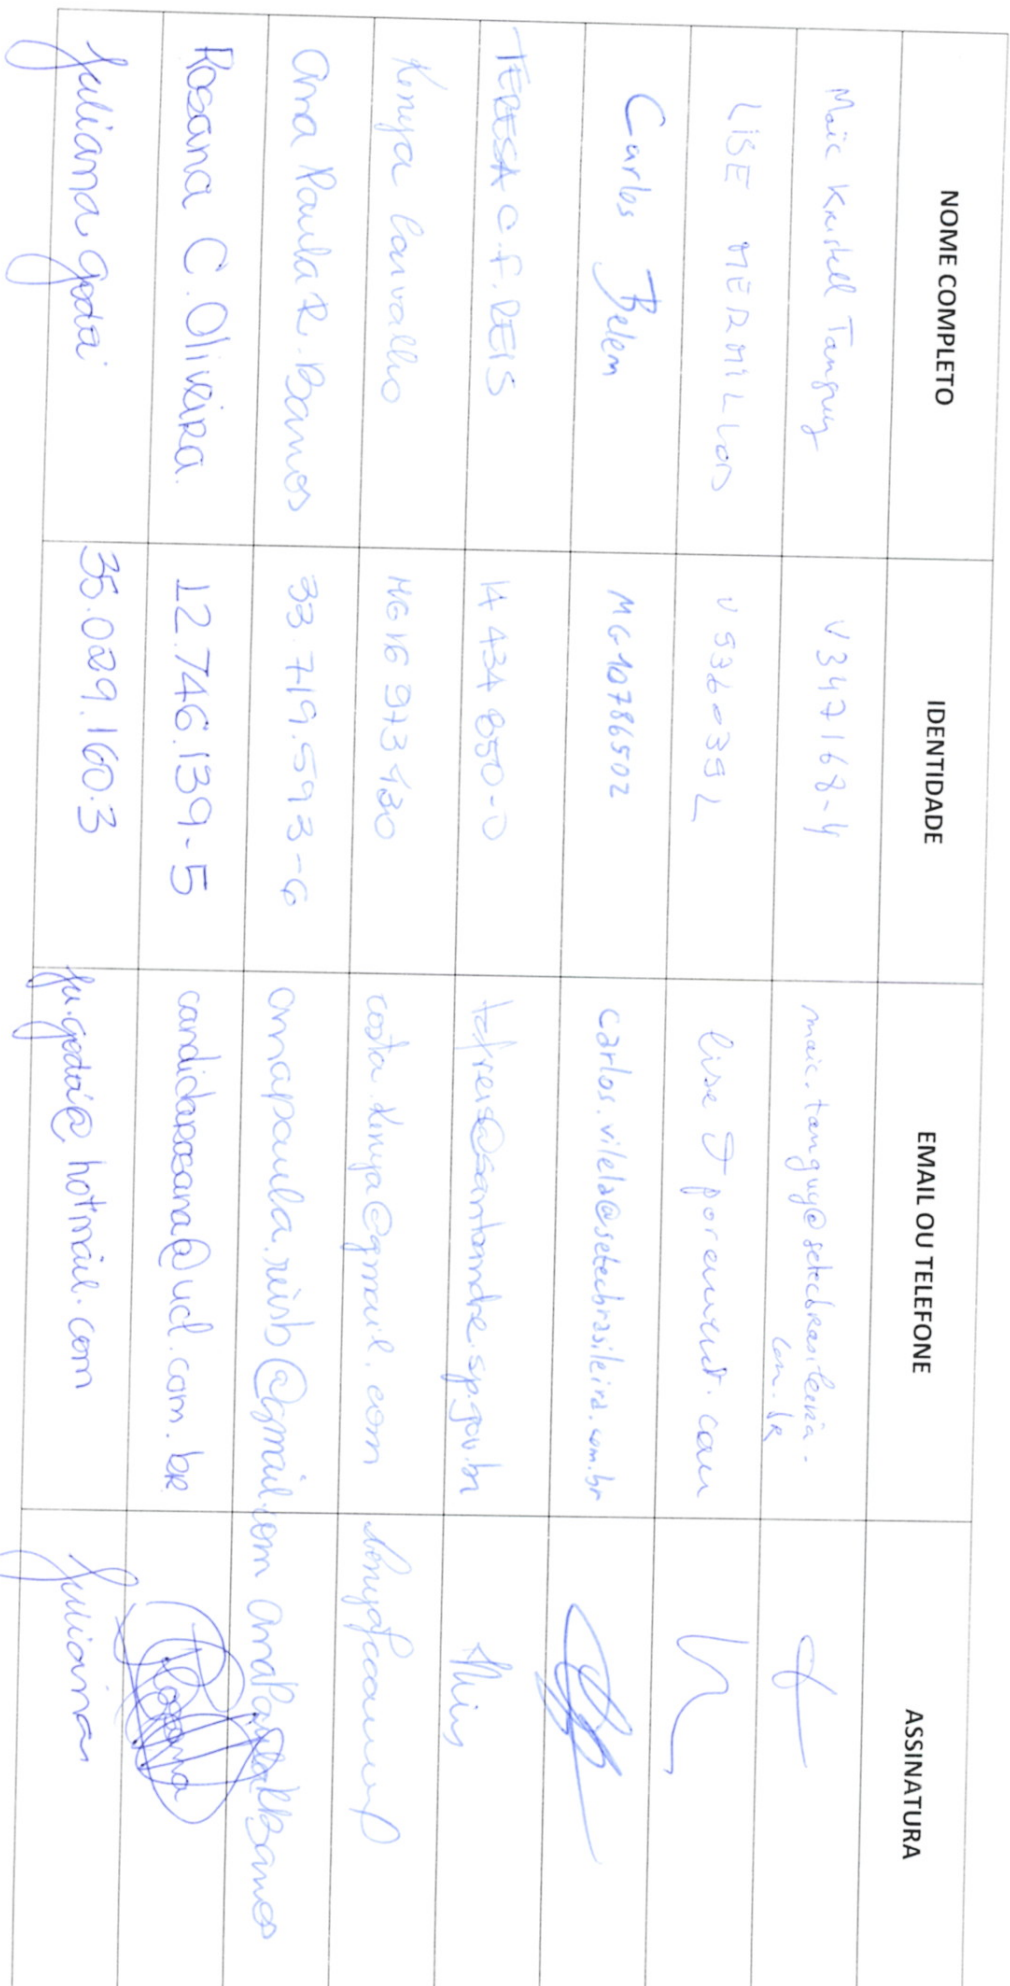 NOME COMPLETO IDENTIDADE EMAIL OU TELEFONE ASSINATURA
Maic Kristell Tanguy V347168-4 maic.tanguy@setecbrasileira.
com.br
LISE V536039L
Carlos Belem MG-10786502 carlos.vilela@setecbrasileira.com.br
TERESA C.F. REIS 14 434 850-0 tcfreis@santoandre.sp.gov.br
Kenya Carvalho MG16 973 430 costa.kenya@gmail.com
Ana Paula R. Barros 33.719.593-6 anapaula.reisb@gmail.com Ana Paula R Barros
Rosana C. Oliveira 12.746.139-5 candidarosana@uol.com.br Rosana
Juliana godoi 35.029.160.3 ju.godoi@hotmail.com Juliana